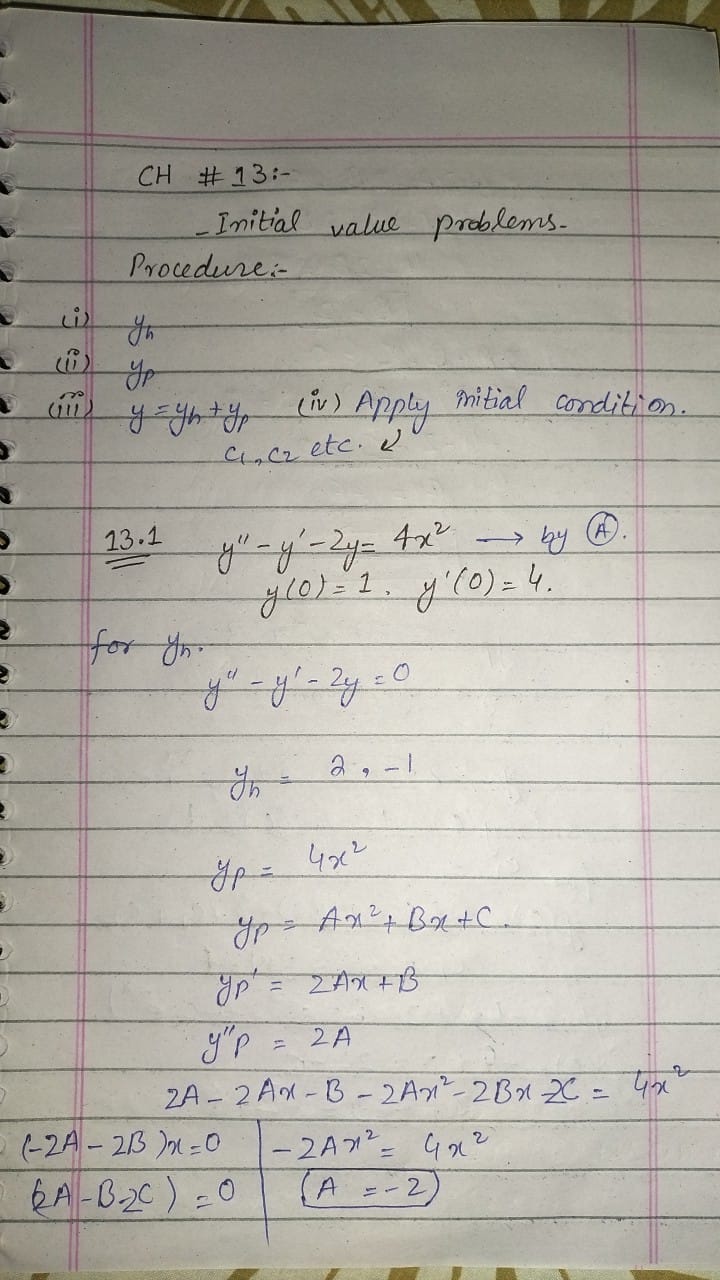 CH # 13:-
- Initial value problems -
Procedure:-
(i) yh
(ii) yp
(iii) y = yh + yp (iv) Apply initial condition.
C1, C2 etc. ↙
13.1 y'' - y' - 2y = 4x² → by Ⓐ.
y(0) = 1, y'(0) = 4.
for yh.
y'' - y' - 2y = 0
yh = 2, -1
yp = 4x²
yp = Ax² + Bx + C.
yp' = 2Ax + B
y''p = 2A
2A - 2Ax - B - 2Ax² - 2Bx - 2C = 4x²
(-2A - 2B)x = 0 | -2Ax² = 4x²
(2A - B - 2C) = 0 (A = -2)